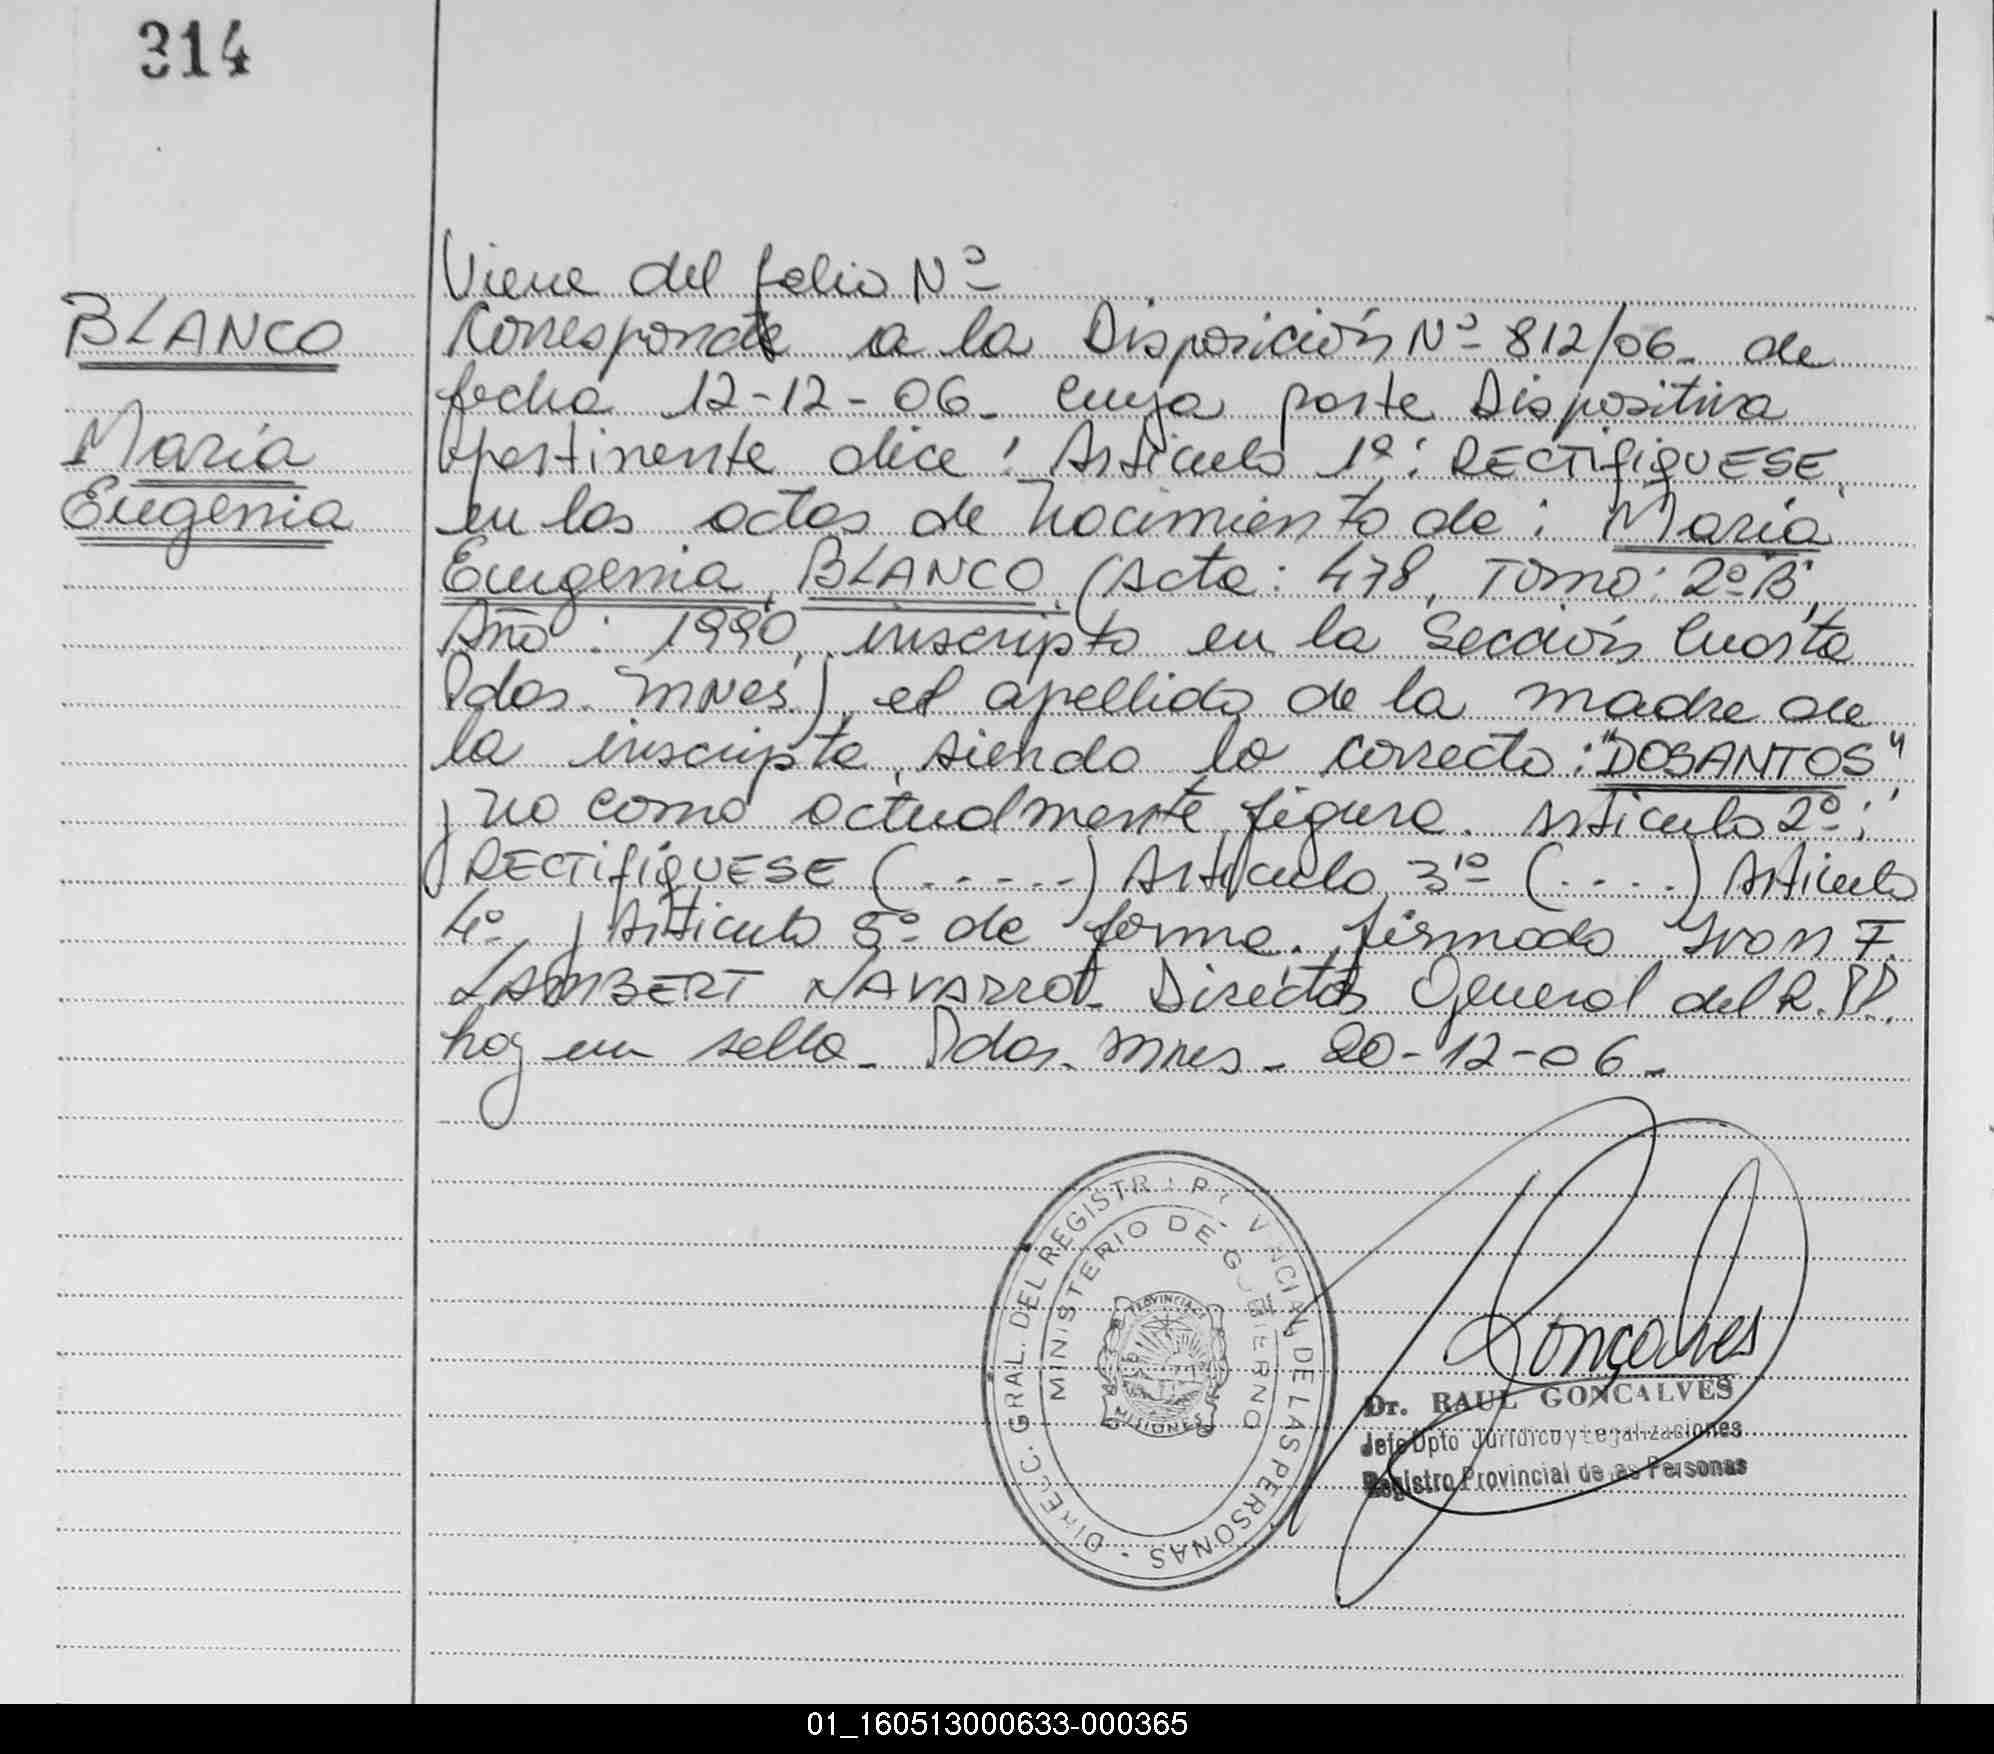 314
BLANCO
María
Eugenia
Viene del folio Nº
Corresponde a la Disposición Nº 812/06- de
fecha 12-12-06- cuya parte Dispositiva
pertinente dice: Artículo 1º: RECTIFIQUESE,
en las actas de Nacimiento de: María
Eugenia BLANCO, (Acta: 478, Tomo: 2º B,
Año: 1990, inscripta en la Sección Cuarta
Pdas. Mnes.), el apellido de la madre de
la inscripta, siendo lo correcto: "DOSANTOS",
y no como actualmente figura. Artículo 2º:
RECTIFIQUESE (.....) Artículo 3º (....) Artículo
4º y Artículo 5º de forma. firmado Ivon F.
LAMBERT NAVARRO- Director General del R.P.P.
hay un sello- Pdas. Mnes- 20-12-06-
DIREC. GRAL. DEL REGISTRO PROVINCIAL DE LAS PERSONAS -
MINISTERIO DE GOBIERNO
PROVINCIA DE
MISIONES
Gonçalves
Dr. RAUL GONCALVES
Jefe Dpto Jurídico y Legalizaciones
Registro Provincial de las Personas
01_160513000633-000365